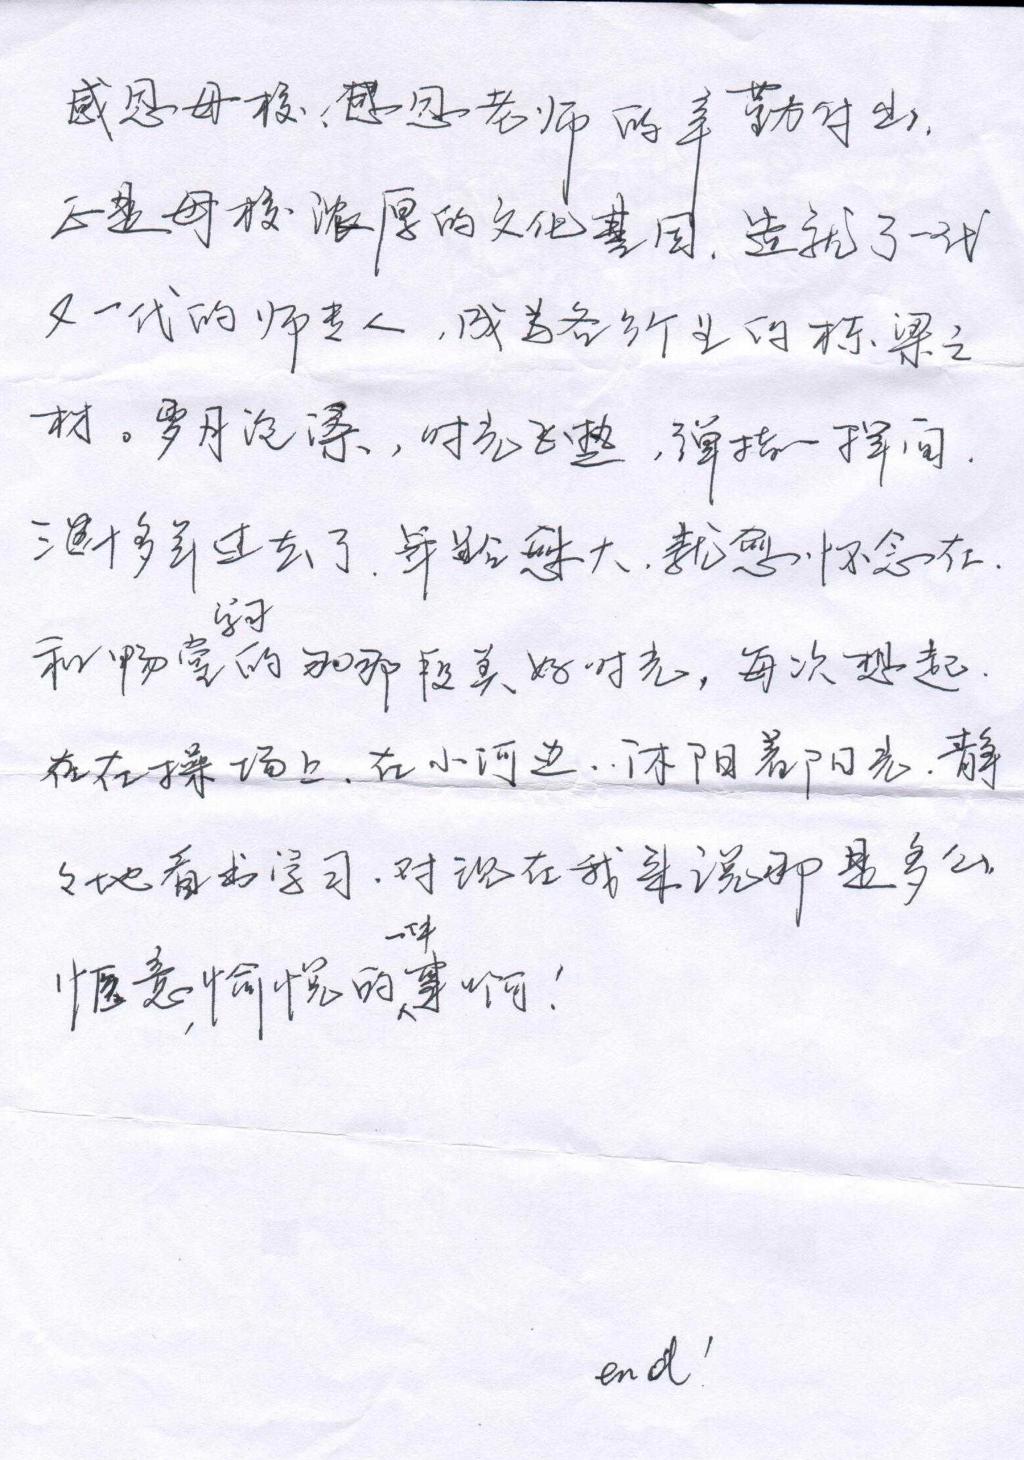 感恩母校,感恩老师的辛勤付出,
正是母校浓厚的文化基因,造就了一代
又一代的师专人,成为各行业的栋梁之
材。岁月沧桑,时光飞逝,弹指一挥间,
三十多年过去了,年龄愈大,就愈怀念在
和畅堂学习的那段美好时光,每次想起
在在操场上,在小河边,沐阳着阳光,静
々地看书学习,对现在我来说那是多么
惬意,愉悦的一件事啊!
end!